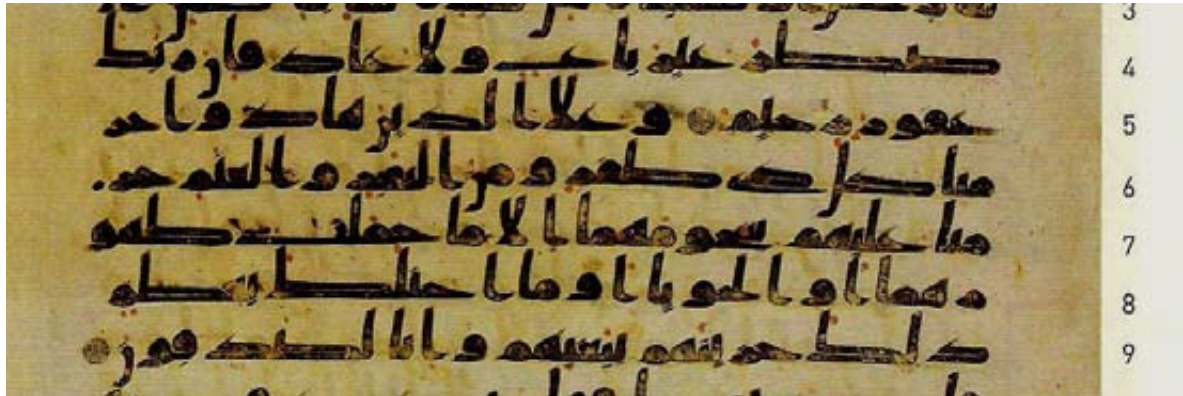 3
ضطر غير باغ ولا عاد فان ربك 4
غفور رحيم وعلى الذين هادوا حر 5
منا كل ذي ظفر ومن البقر والغنم حر 6
منا عليهم شحومهما الا ما حملت ظهو 7
رهما او الحوايا او ما اختلط بعظم 8
ذلك جزينهم ببغيهم وانا لصدقون 9